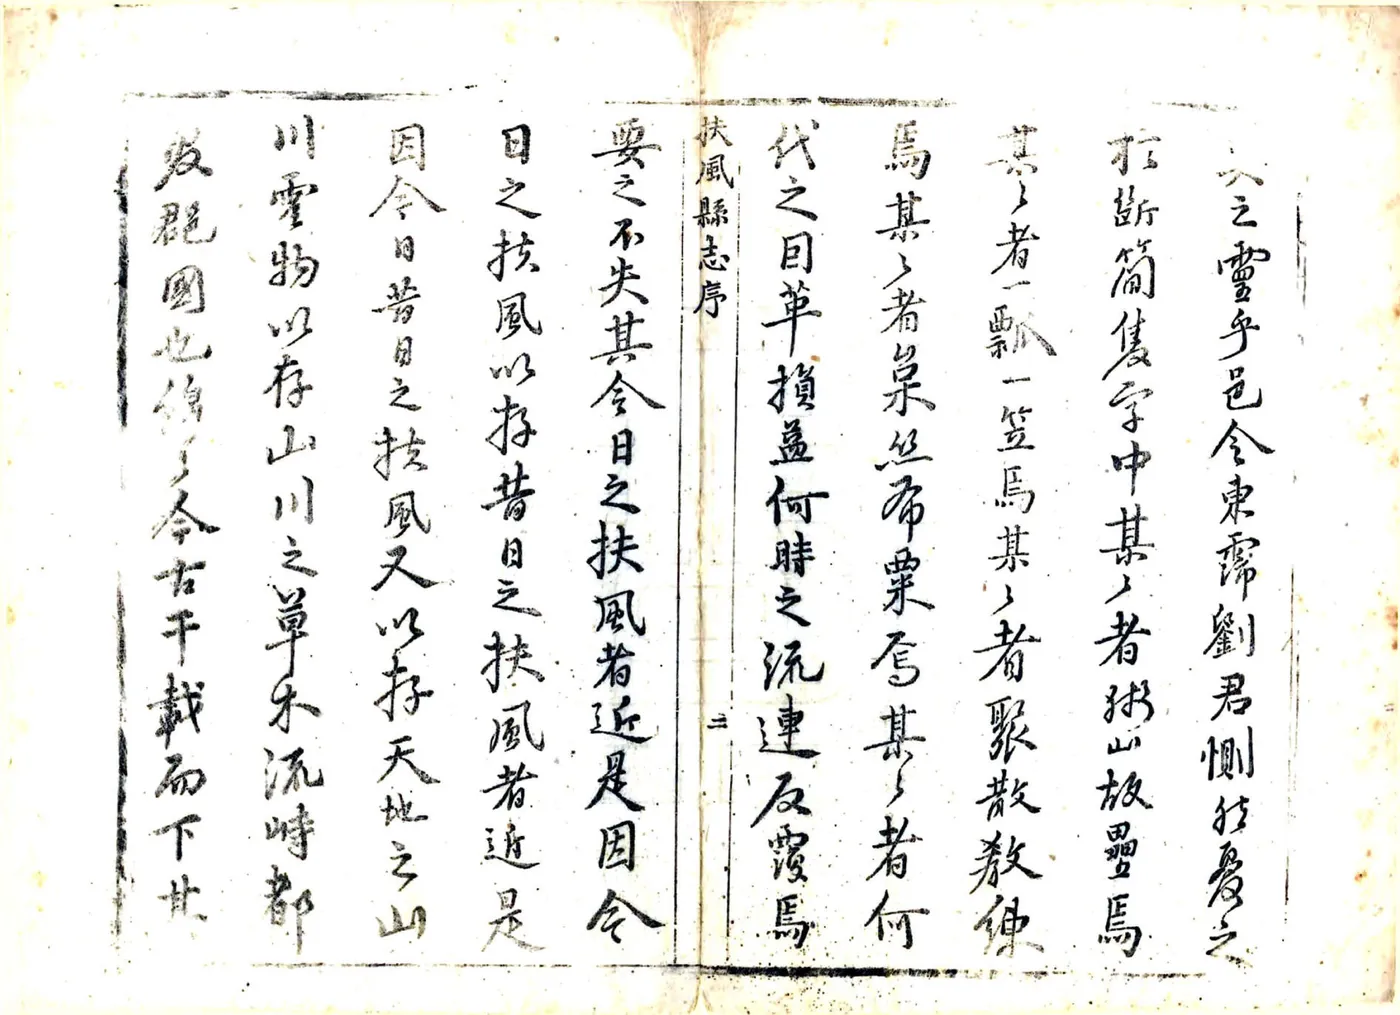 之靈乎邑令東霈劉君惻然憂之
於斷簡隻字中某〻者𢎞山故壘焉
某〻者一瓢一笠焉某〻者聚散教練
焉某〻者枲丝布粟焉某〻者何
代之因革損益何時之流連反覆焉
扶風縣志序
三
要之不失其今日之扶風者近是因今
日之扶風以存昔日之扶風者近是
因今日昔日之扶風又以存天地之山
川靈物以存山川之草木流峙都
茇郡國也俻〻今古千載而下其